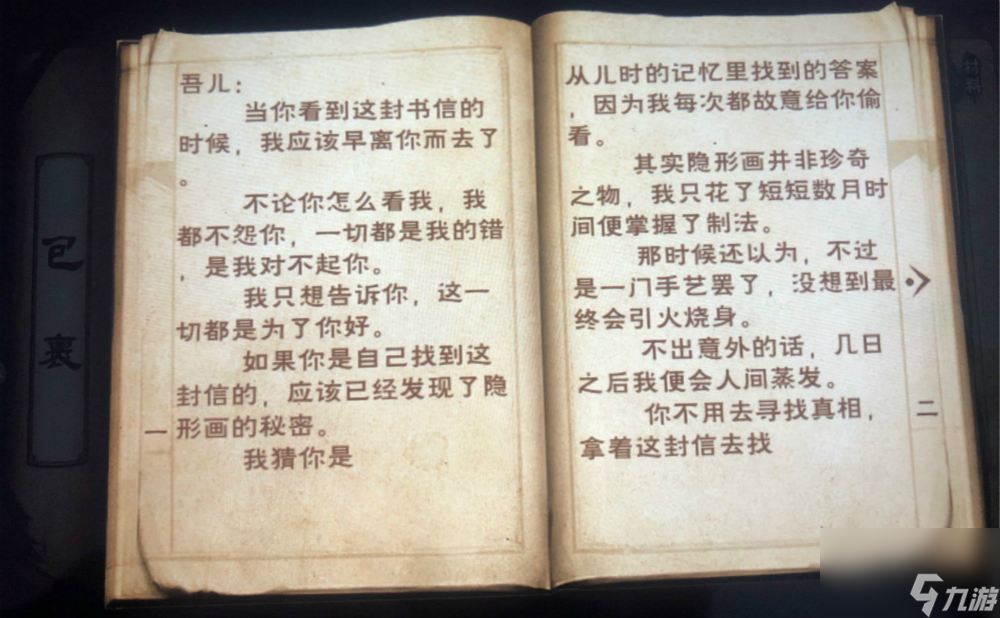 吾儿：
当你看到这封书信的
时候，我应该早离你而去了
。
不论你怎么看我，我
都不怨你，一切都是我的错
，是我对不起你。
我只想告诉你，这一
切都是为了你好。
如果你是自己找到这
封信的，应该已经发现了隐
形画的秘密。
我猜你是
一
从儿时的记忆里找到的答案
，因为我每次都故意给你偷
看。
其实隐形画并非珍奇
之物，我只花了短短数月时
间便掌握了制法。
那时候还以为，不过
是一门手艺罢了，没想到最
终会引火烧身。
不出意外的话，几日
之后我便会人间蒸发。
你不用去寻找真相，
拿着这封信去找
二
包裹
材料
九游